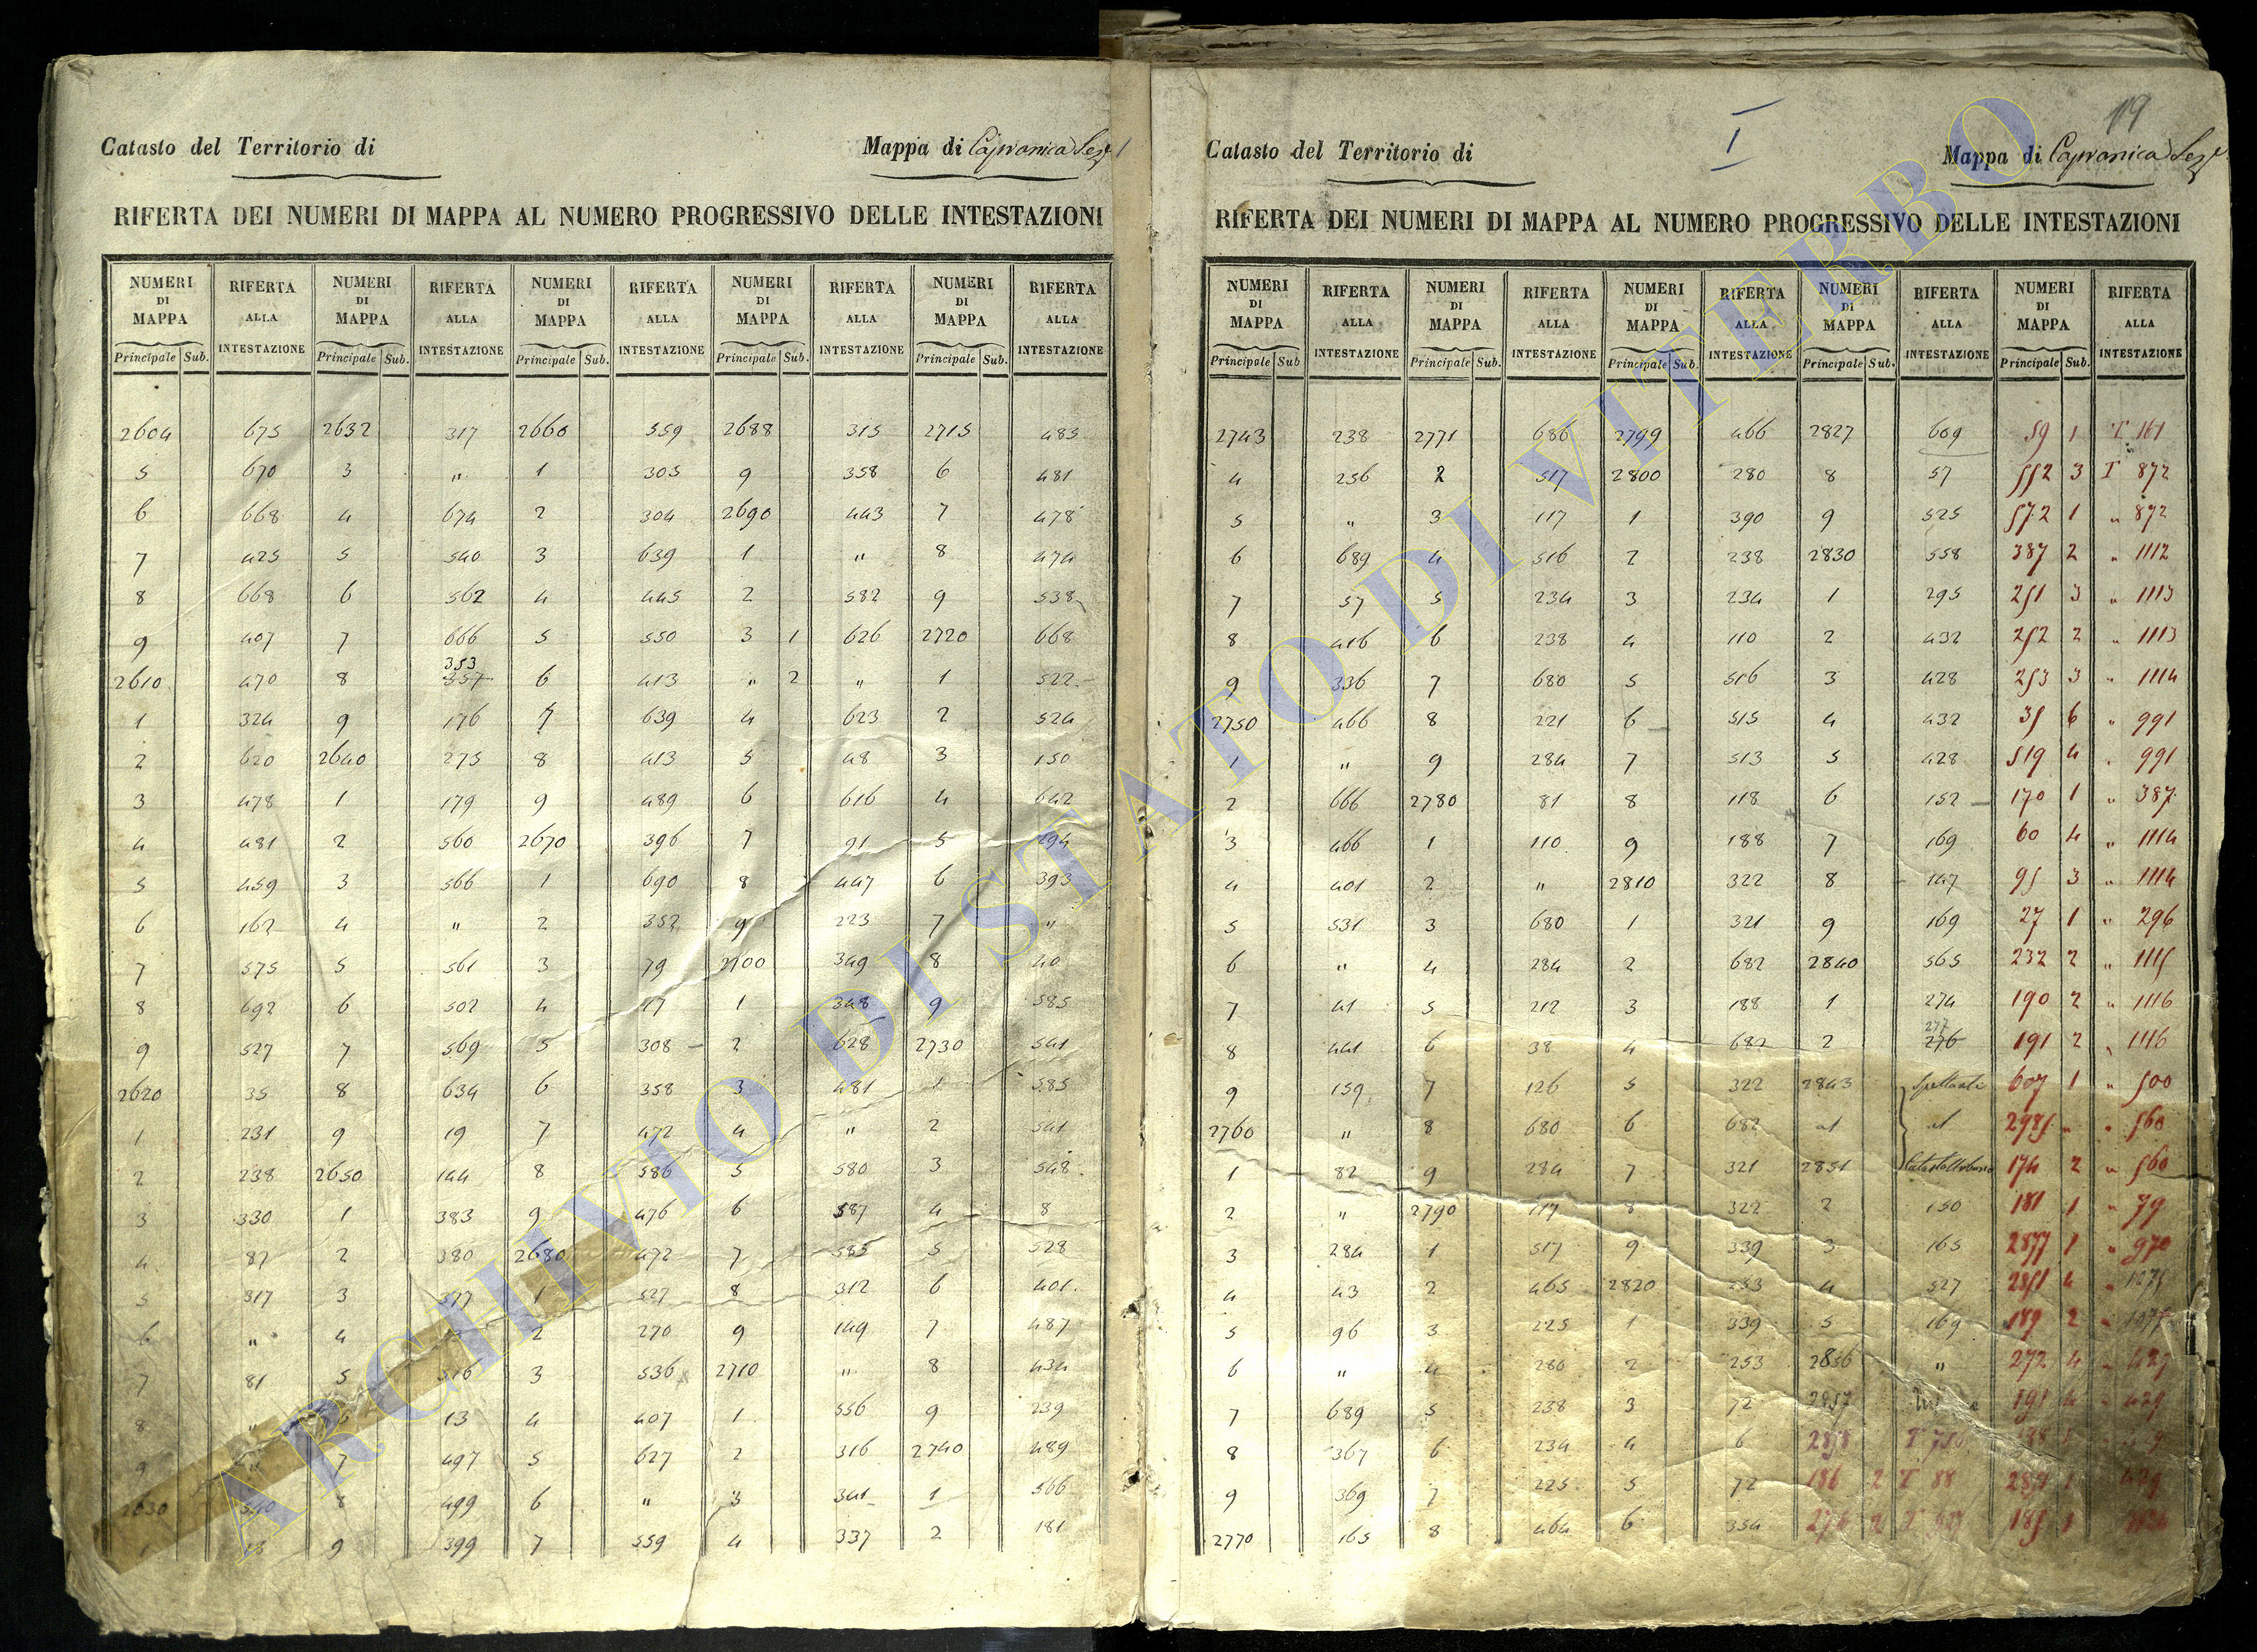 Catasto del Territorio di
Mappa di Capranica Sez.e 1
RIFERTA DEI NUMERI DI MAPPA AL NUMERO PROGRESSIVO DELLE INTESTAZIONI
NUMERI DI MAPPA RIFERTA ALLA INTESTAZIONE NUMERI DI MAPPA RIFERTA ALLA INTESTAZIONE NUMERI DI MAPPA RIFERTA ALLA INTESTAZIONE NUMERI DI MAPPA RIFERTA ALLA INTESTAZIONE NUMERI DI MAPPA RIFERTA ALLA INTESTAZIONE
Principale Sub. Principale Sub. Principale Sub. Principale Sub. Principale Sub.
2604 675 2632 317 2660 559 2688 315 2715 483
5 670 3 " 1 305 9 358 6 481
6 668 4 674 2 304 2690 443 7 478
7 425 5 540 3 639 1 " 8 474
8 668 6 562 4 445 2 582 9 538
9 407 7 666 5 550 3 1 626 2720 668
2610 470 8 353 357 6 413 " 2 " 1 522
1 324 9 176 7 639 4 623 2 524
2 620 2640 275 8 413 5 48 3 150
3 478 1 179 9 489 6 616 4 642
4 481 2 560 2670 396 7 91 5 294
5 459 3 566 1 690 8 447 6 393
6 162 4 " 2 352 9 223 7 "
7 575 5 561 3 79 2700 349 8 40
8 692 6 502 4 17 1 348 9 585
9 527 7 569 5 308 2 628 2730 541
2620 35 8 634 6 358 3 481 1 585
1 231 9 19 7 472 4 " 2 541
2 238 2650 144 8 586 5 580 3 548
3 330 1 383 9 476 6 587 4 8
4 87 2 380 2680 472 7 585 5 528
5 317 3 377 1 527 8 312 6 401
6 " 4 2 270 9 149 7 487
7 81 5 516 3 536 2710 " 8 434
8 " 6 13 4 407 1 556 9 239
9 " 7 497 5 627 2 316 2740 489
2630 540 8 499 6 " 3 341 1 566
1 9 399 7 559 4 337 2 181
I
119
Catasto del Territorio di
Mappa di Capranica Sez.e
RIFERTA DEI NUMERI DI MAPPA AL NUMERO PROGRESSIVO DELLE INTESTAZIONI
NUMERI DI MAPPA RIFERTA ALLA INTESTAZIONE NUMERI DI MAPPA RIFERTA ALLA INTESTAZIONE NUMERI DI MAPPA RIFERTA ALLA INTESTAZIONE NUMERI DI MAPPA RIFERTA ALLA INTESTAZIONE NUMERI DI MAPPA RIFERTA ALLA INTESTAZIONE
Principale Sub Principale Sub. Principale Sub. Principale Sub. Principale Sub.
2743 238 2771 686 2799 466 2827 609 59 1 T 161
4 256 2 517 2800 280 8 57 552 3 T 872
5 " 3 117 1 390 9 525 572 1 " 872
6 689 4 516 2 238 2830 558 387 2 " 1112
7 57 5 234 3 234 1 295 251 3 " 1113
8 416 6 238 4 110 2 432 252 2 " 1113
9 336 7 680 5 516 3 428 253 3 " 1114
2750 466 8 221 6 515 4 432 35 6 " 991
1 " 9 284 7 513 5 428 519 4 " 991
2 666 2780 81 8 118 6 152 170 1 " 387
3 466 1 110 9 188 7 169 60 4 " 1114
4 401 2 " 2810 322 8 147 95 3 " 1114
5 531 3 680 1 321 9 169 27 1 " 296
6 " 4 284 2 682 2840 565 232 2 " 1115
7 41 5 212 3 188 1 274 190 2 " 1116
8 441 6 38 4 682 2 277 276 191 2 " 1116
9 159 7 126 5 322 2843 Spettanti 607 1 " 500
2760 " 8 680 6 682 al al 2985 " " 560
1 82 9 284 7 321 2851 Catasto Urbano 174 2 " 560
2 " 2790 117 8 322 2 150 181 1 " 79
3 284 1 517 9 339 3 165 2877 1 " 970
4 43 2 465 2820 253 4 527 2851 4 " 1075
5 96 3 225 1 339 5 169 189 2 " 1077
6 " 4 286 2 253 2856 " 272 4 " 427
7 689 5 238 3 72 2857 195 4 " 429
8 367 6 234 4 6 2858 T
9 369 7 225 5 72 186 2 T 88
2770 165 8 464 6 354 2 T 185
ARCHIVIO DI STATO DI VITERBO